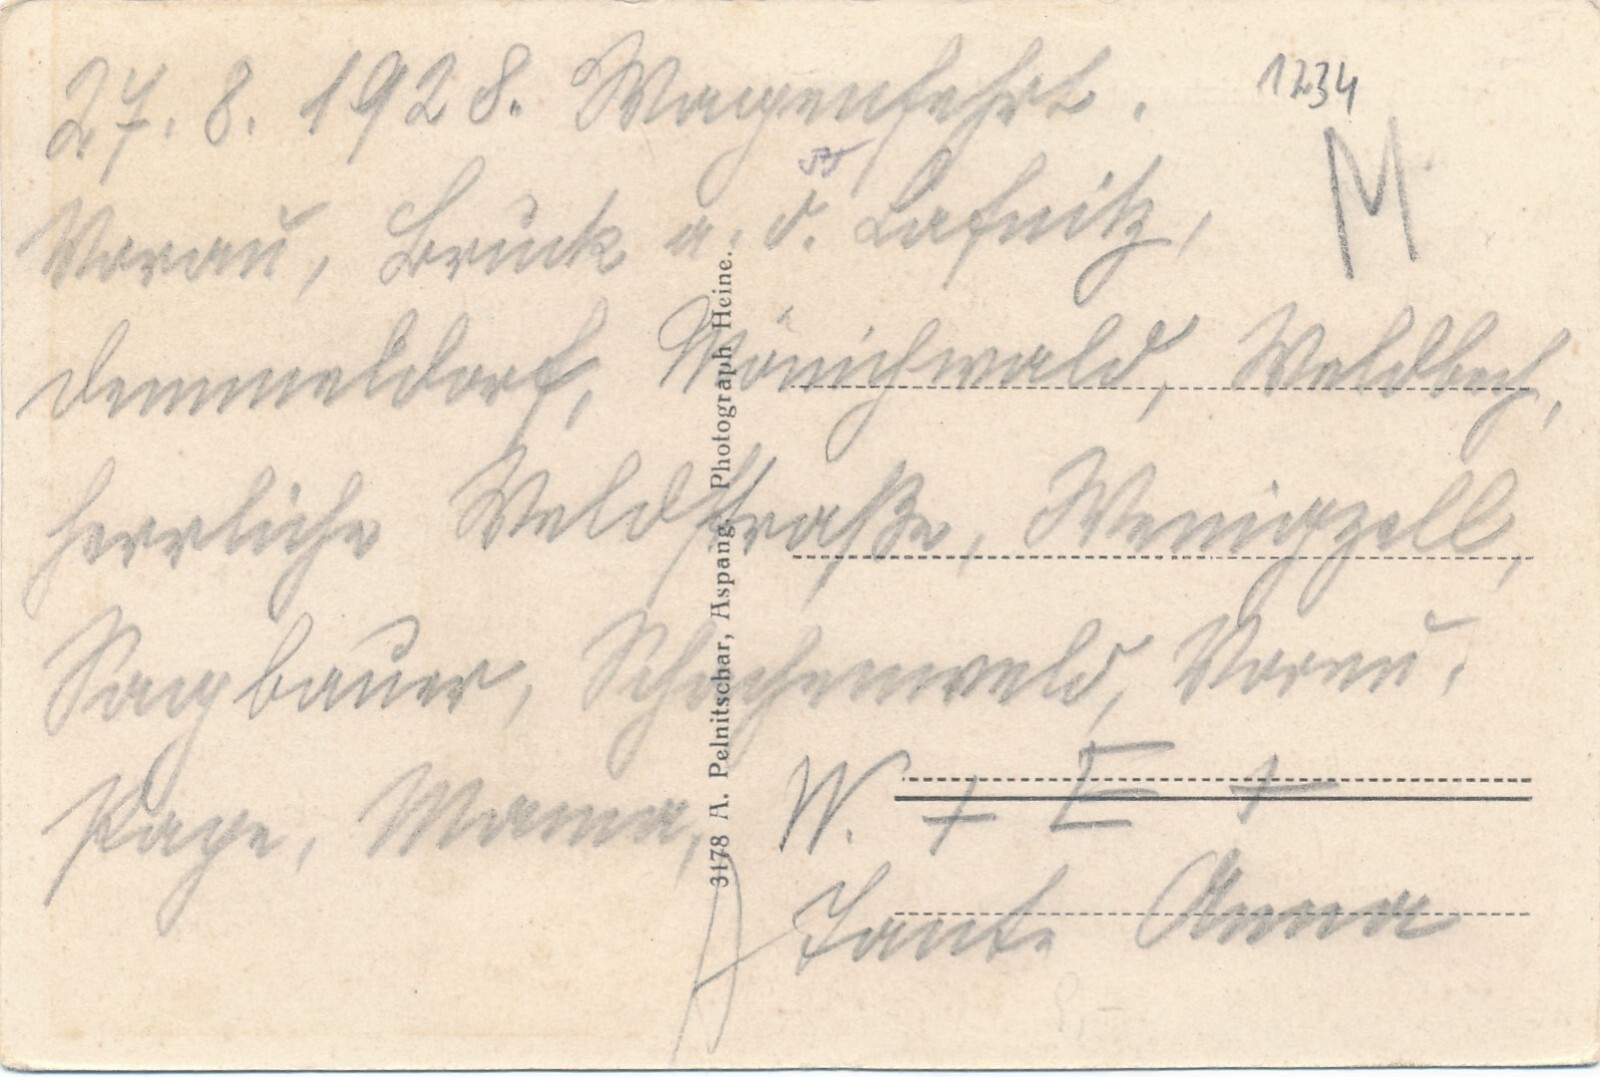 27. 8. 1928. Wagenfahrt.
1234
M
Vorau, Bruck a. d. Lafnitz,
Demmeldorf, Mönichwald, Waldbach,
herrliche Waldstraße, Wenigzell,
Sagbauer, Schachenwald, Vorau.
Mama,
W. + E +
Tante Anna
3178 A. Pelnitschar, Aspang. Photograph Heine.